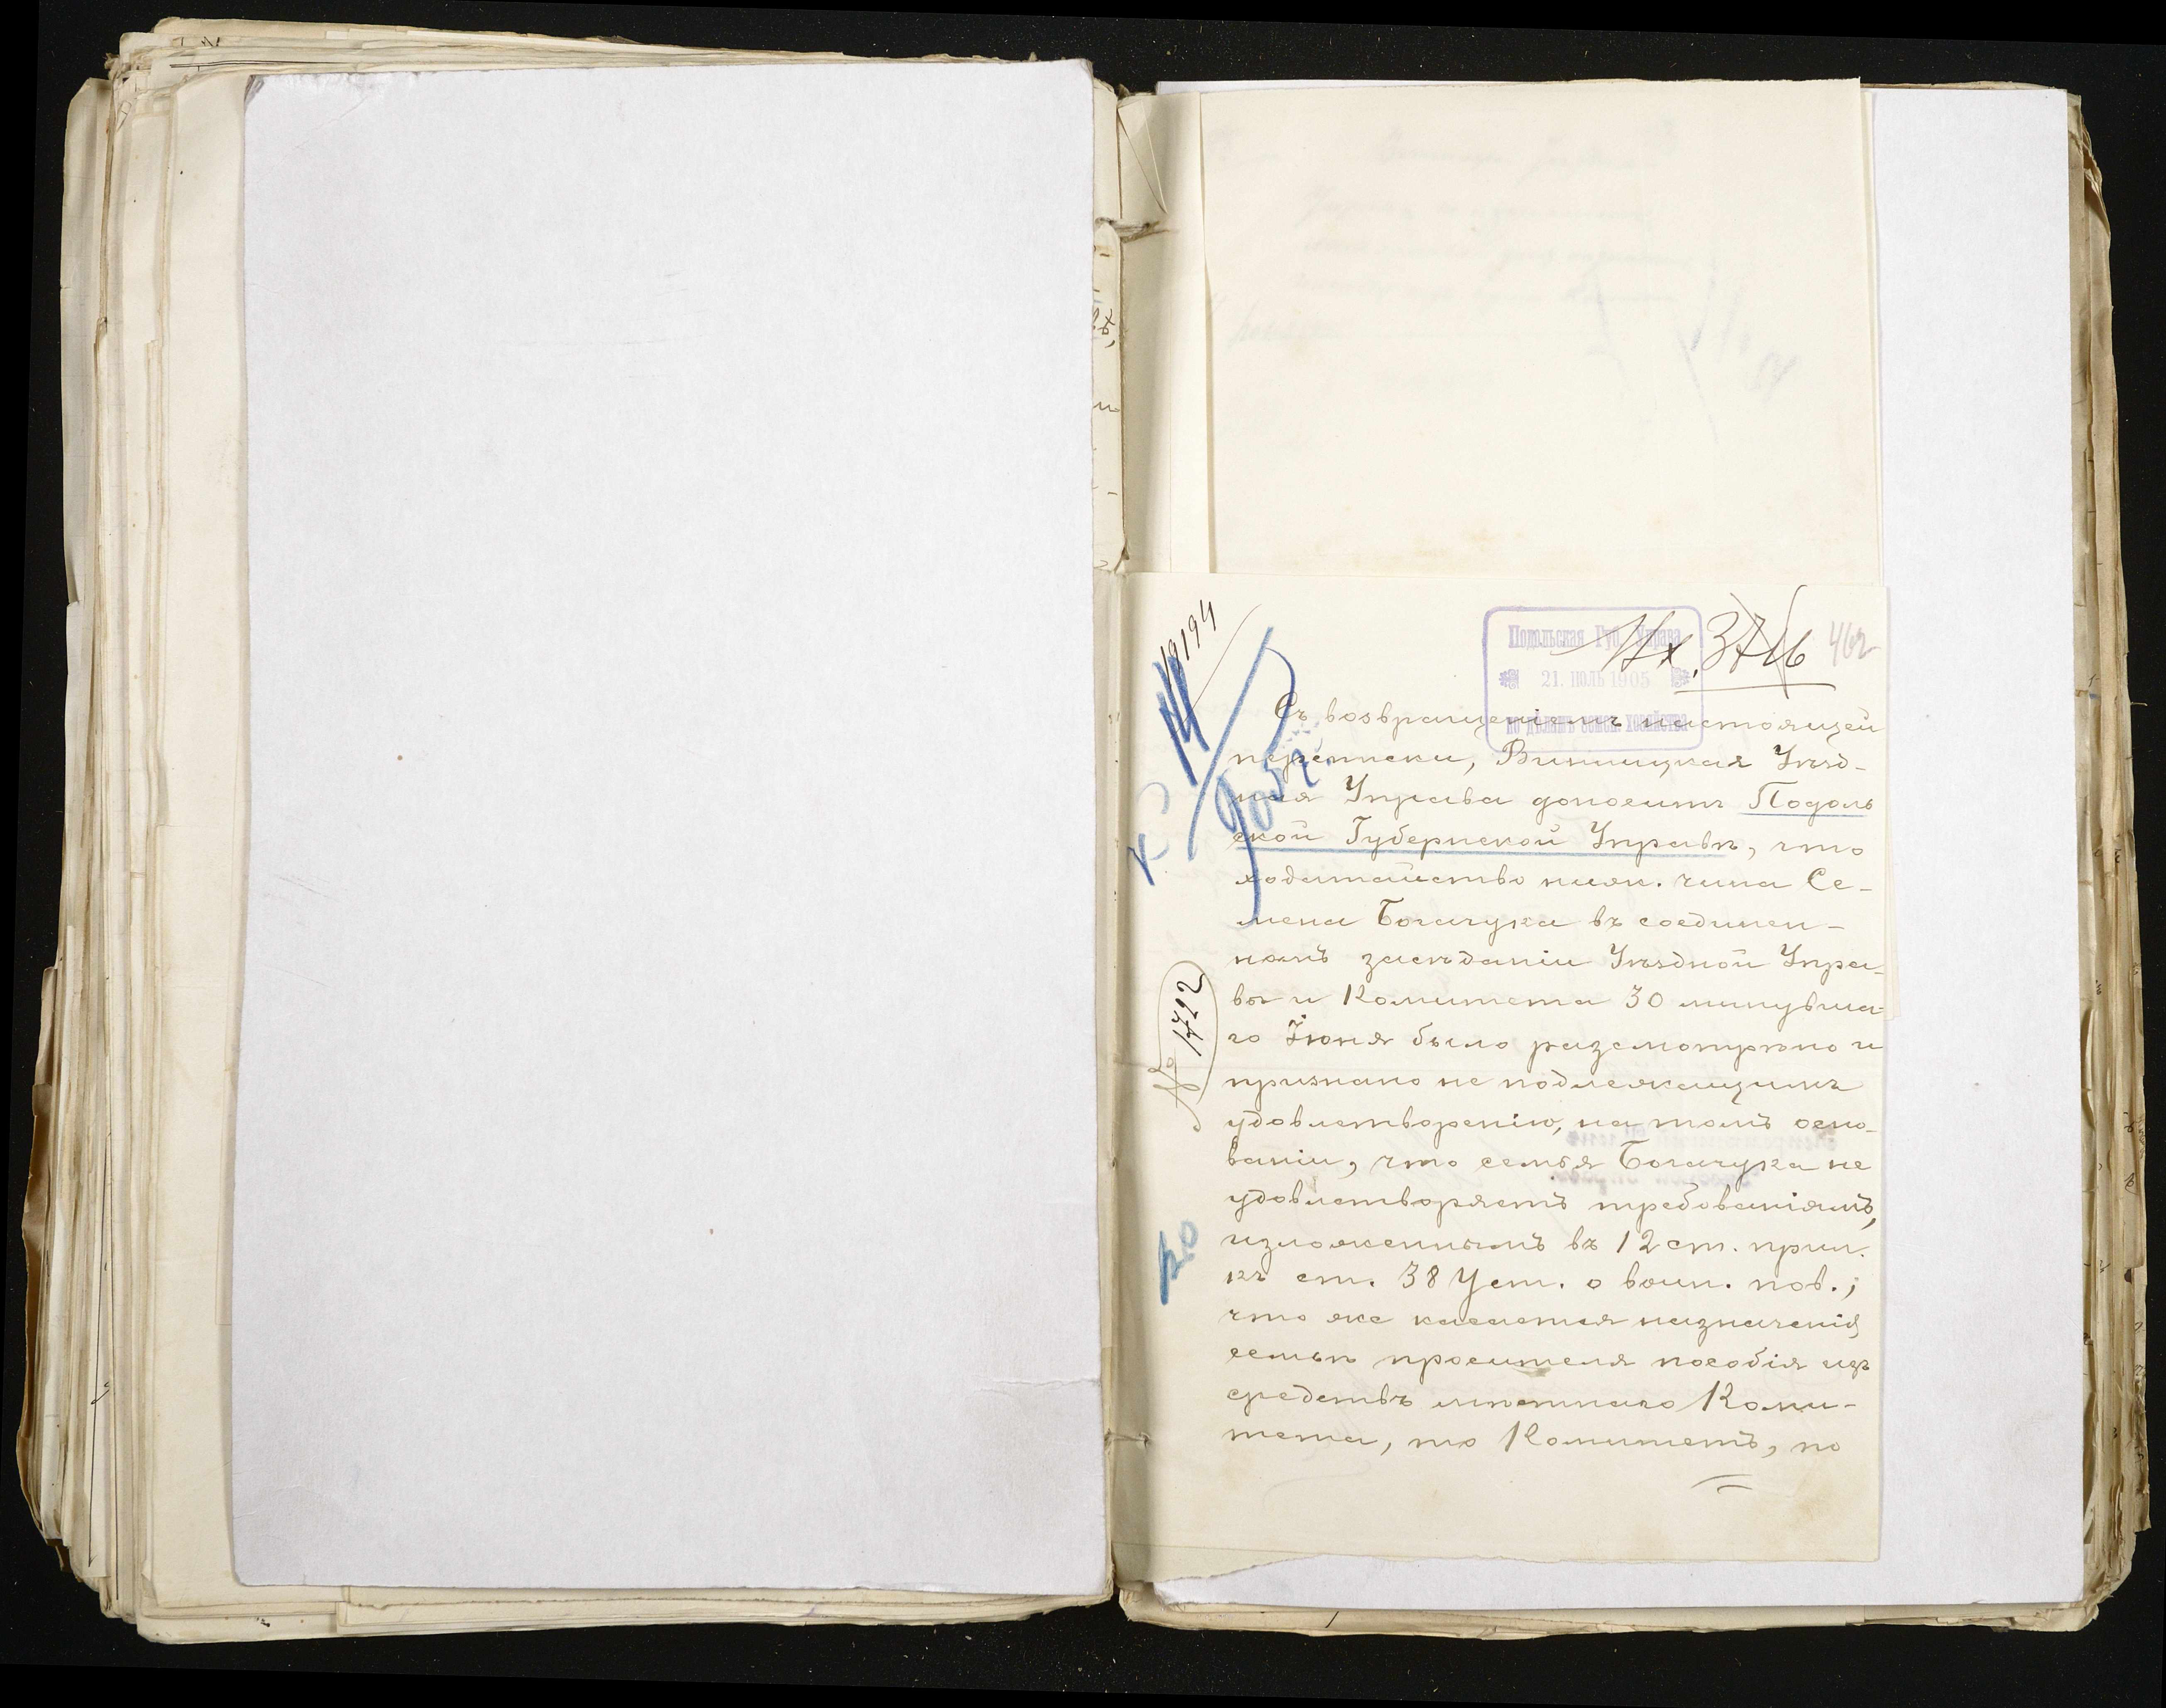 19194
Подольская Губ. Управа
21. ІЮЛЬ 1905
по дѣламъ земск. хозяйства
Вх. 3716
462
Съ возвращеніемъ настоящей
переписки, Винницкая Уѣзд-
ная Управа доноситъ Подоль
ской Губернской Управѣ, что
ходатайство нижн. чина Се-
мена Богачука въ соединен-
номъ засѣданіи Уѣздной Упра-
вы и Комитета 30 минувша-
го Іюня было разсмотрѣно и
признано не подлежащимъ
удовлетворенію, на томъ осно-
ваніи, что семья Богачука не
удовлетворяетъ требованіямъ,
изложеннымъ въ 12 ст. прил.
къ ст. 38 Уст. о воин. пов.;
что же касается назначенія
семьѣ просителя пособія изъ
средствъ мѣстнаго Коми-
тета, то Комитетъ, по
№ 1722